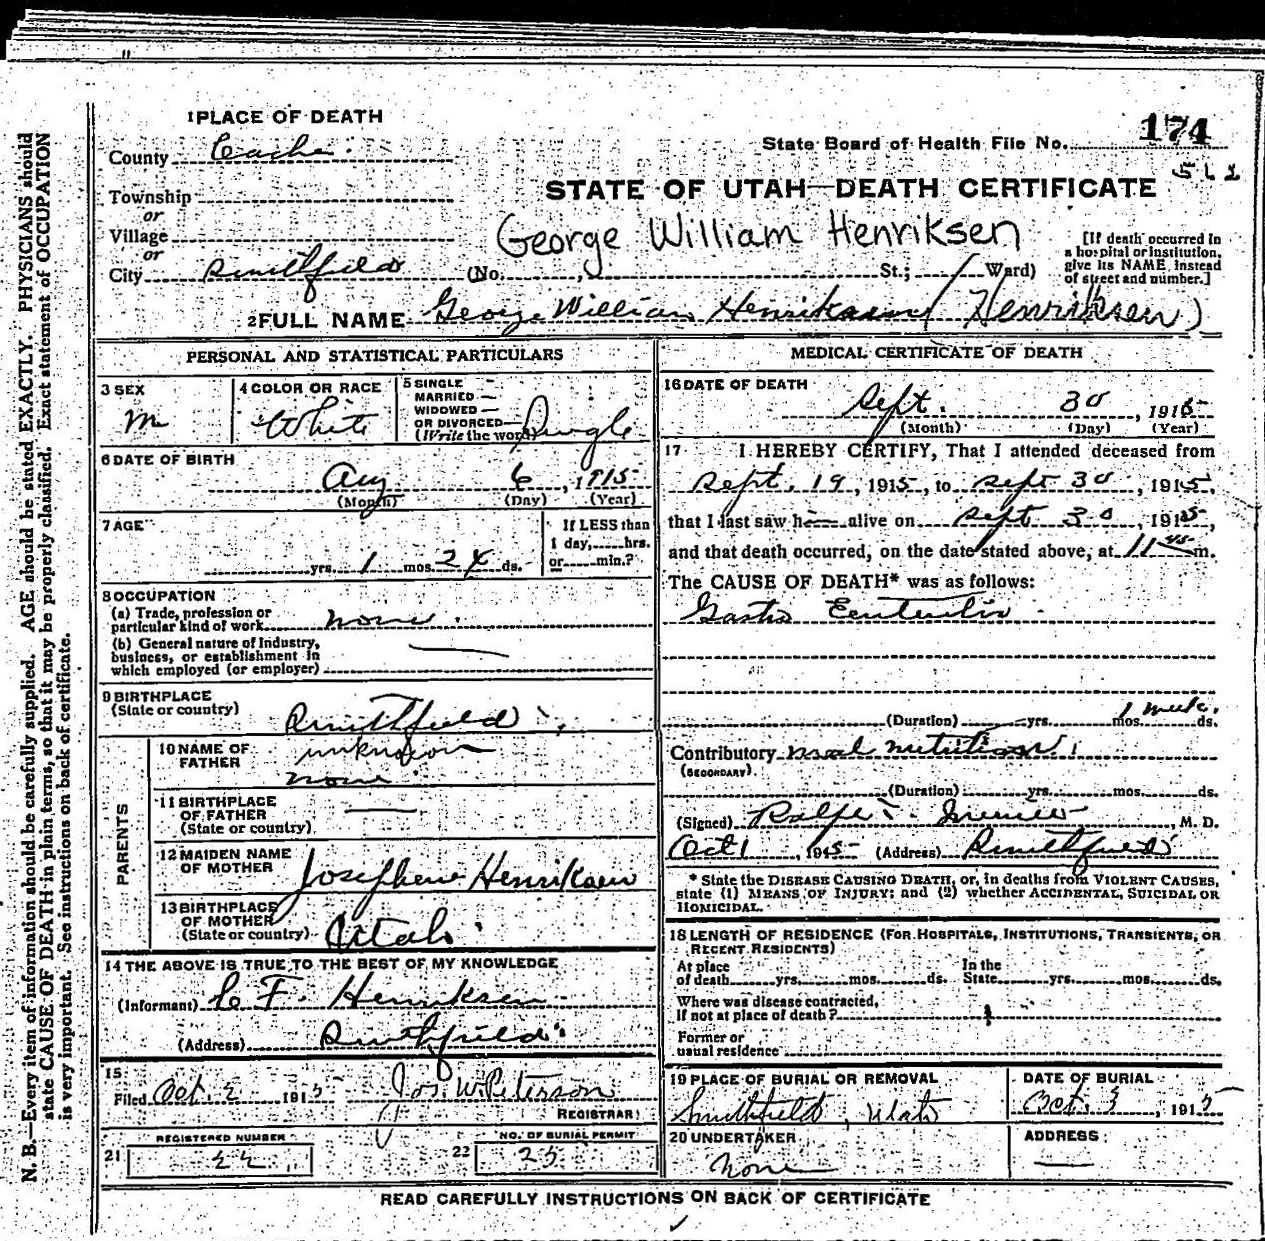 1 PLACE OF DEATH
County Cache
State Board of Health File No. 174
Township
or
Village
or
City Smithfield (No. St.; Ward)
STATE OF UTAH—DEATH CERTIFICATE
George William Henriksen
[If death occurred in
a hospital or institution,
give its NAME instead
of street and number.]
2 FULL NAME George William Henriksen (Henriksen)
PERSONAL AND STATISTICAL PARTICULARS
3 SEX
M
4 COLOR OR RACE
White
5 SINGLE
MARRIED
WIDOWED
OR DIVORCED
(Write the word) Single
6 DATE OF BIRTH
Aug 6, 1915
(Month) (Day) (Year)
7 AGE
yrs. 1 mos. 24 ds.
If LESS than
1 day, hrs.
or min.?
8 OCCUPATION
(a) Trade, profession or
particular kind of work none
(b) General nature of Industry,
business, or establishment in
which employed (or employer)
9 BIRTHPLACE
(State or country)
Smithfield
PARENTS
10 NAME OF
FATHER
unknown
none
11 BIRTHPLACE
OF FATHER
(State or country)
12 MAIDEN NAME
OF MOTHER
Josephene Henriksen
13 BIRTHPLACE
OF MOTHER
(State or country) Utah
14 THE ABOVE IS TRUE TO THE BEST OF MY KNOWLEDGE
(Informant) C F. Henriksen
(Address) Smithfield
15
Filed Oct. 2 1915 Jos. W. Peterson
REGISTRAR
REGISTERED NUMBER
21
NO. OF BURIAL PERMIT
22 25
MEDICAL CERTIFICATE OF DEATH
16 DATE OF DEATH
Sept. 30, 1915
(Month) (Day) (Year)
17 I HEREBY CERTIFY, That I attended deceased from
Sept. 19, 1915, to Sept 30, 1915,
that I last saw h alive on Sept 30, 1915,
and that death occurred, on the date stated above, at 11 m.
The CAUSE OF DEATH* was as follows:
Gastro
(Duration) yrs. mos. 1 week. ds.
Contributory mal nutrition
(SECONDARY)
(Duration) yrs. mos. ds.
(Signed) M. D.
Oct 1, 1915 (Address) Smithfield
* State the DISEASE CAUSING DEATH, or, in deaths from VIOLENT CAUSES,
state (1) MEANS OF INJURY; and (2) whether ACCIDENTAL, SUICIDAL OR
HOMICIDAL.
18 LENGTH OF RESIDENCE (FOR HOSPITALS, INSTITUTIONS, TRANSIENTS, OR
RECENT RESIDENTS)
At place
of death yrs. mos. ds.
In the
State yrs. mos. ds.
Where was disease contracted,
if not at place of death?
Former or
usual residence
19 PLACE OF BURIAL OR REMOVAL
Smithfield, Utah
DATE OF BURIAL
Oct. 3, 1915
20 UNDERTAKER
None
ADDRESS
READ CAREFULLY INSTRUCTIONS ON BACK OF CERTIFICATE
N. B.—Every item of information should be carefully supplied. AGE should be stated EXACTLY. PHYSICIANS should
state CAUSE OF DEATH in plain terms, so that it may be properly classified. Exact statement of OCCUPATION
is very important. See instructions on back of certificate.